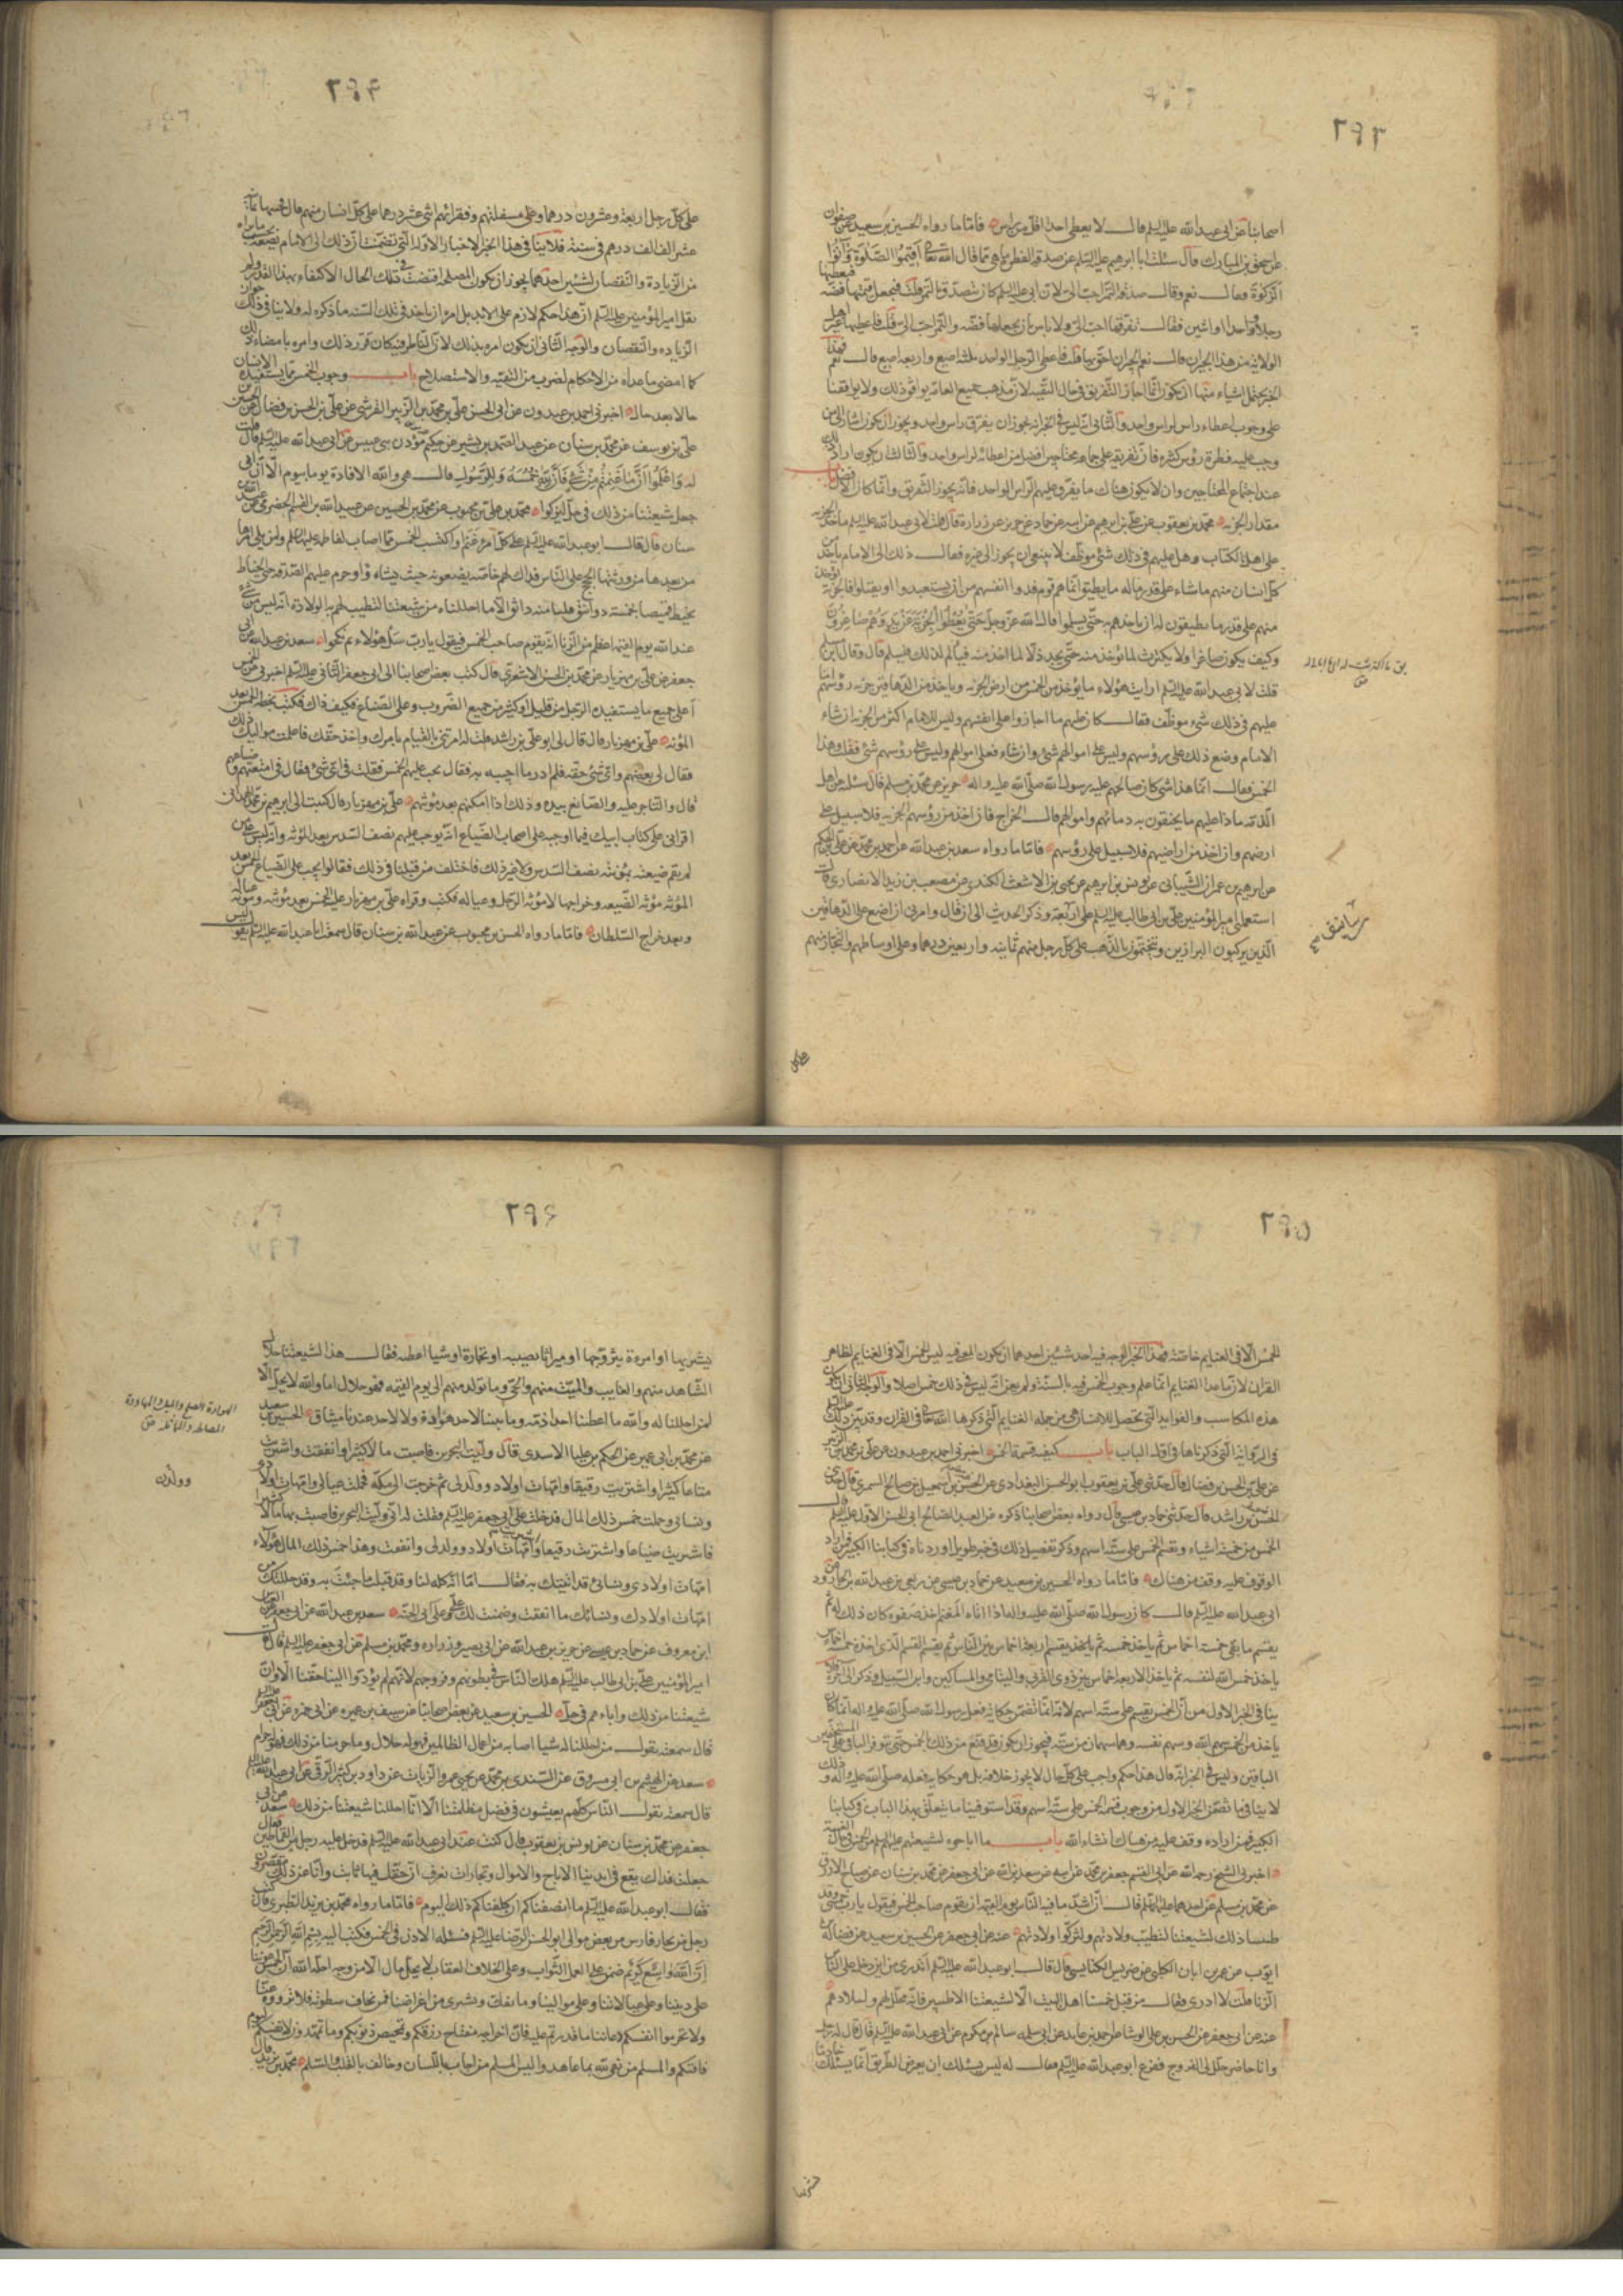 ٢٩٣
اصحابنا عن ابی عبد الله علیه السلم قال لا یعطی احد اقل من راس فاما ما رواه الحسین بن سعید عن صفوان
عن اسحق بن المبارک قال سئلت ابا ابرهیم علیه السلم عن صدقة الفطرة اهی مما قال الله تعا اقیموا الصلوة وآتوا
الزکوة فقال نعم وقال صدقة التمر احب الی لان ابی علیه السلم کان یتصدق بالتمر قلت فیجعل قیمتها فضة فیعطیها
رجلا واحدا او اثنین فقال تفرقها احب الی ولا باس بان یجعلها فضة والتمر احب الی قلت فاعطیها غیر اهل
الولایة من هذا الجیران قال نعم الجیران احق بها قلت فاعطی الرجل الواحد ثلثة اصیع واربعة اصیع قال نعم فهذا
الخبر یحتمل اشیاء منها ان یکون انما اجاز التفریق فی حال التقیة لان مذهب جمیع العامة یوافق ذلک ولا یوافقنا
علی وجوب اعطاء راس لراس واحد والثانی انه لیس فی الخبر انه یجوز ان یفرق راس واحد ویجوز ان یکون اشار الی من
وجب علیه فطرة رؤس کثیرة فان تفریقه علی جماعة محتاجین افضل من اعطائه لراس واحد والثالث ان یکون اراد ذلک
عند اجتماع المحتاجین وان لا یکون هناک ما یفرق علیهم الراس الواحد فانه یجوز التفریق وانما کان الافضل باب
مقدار الجزیة محمد بن یعقوب عن علی بن ابرهیم عن ابیه عن حماد عن حریز عن زرارة قال قلت لابی عبد الله علیه السلم ما حد الجزیة
علی اهل الکتاب وهل علیهم فی ذلک شئ موظف لا ینبغی ان یجوز الی غیره فقال ذلک الی الامام یأخذ من
کل انسان منهم ما شاء علی قدر ماله ما یطیق انما هم قوم فدوا انفسهم من ان یستعبدوا او یقتلوا فالجزیة تؤخذ
منهم علی قدر ما یطیقون له ان یاخذهم به حتی یسلموا فان الله عز وجل حتی یعطوا الجزیة عن ید وهم صاغرون
وکیف یکون صاغرا ولا یکترث لما یؤخذ منه حتی یجد ذلا لما اخذ منه فیألم لذلک فیسلم قال وقال ابن مسلم
قلت لابی عبد الله علیه السلم ارایت هؤلاء ما یؤخذ من الخمس من ارض الجزیة ویاخذ من الدهاقین جزیة رؤسهم اما
علیهم فی ذلک شئ موظف فقال کان علیهم ما اجازوا علی انفسهم ولیس للامام اکثر من الجزیة ان شاء
الامام وضع ذلک علی رؤسهم ولیس علی اموالهم شئ وان شاء فعلی اموالهم ولیس علی رؤسهم شئ فقلت وهذا
الخمس فقال انما هذا شئ کان صالحهم علیه رسول الله صلی الله علیه واله حریز عن محمد بن مسلم قال سئلته عن اهل
الذمة ماذا علیهم مما یحقنون به دمائهم واموالهم قال الخراج فان اخذ من رؤسهم الجزیة فلا سبیل علی
ارضهم وان اخذ من اراضیهم فلا سبیل علی رؤسهم فاما ما رواه سعد بن عبد الله عن احمد بن محمد عن علی بن الحکم
عن ابرهیم بن عمران الشیبانی عن یونس بن ابرهیم عن یحیی بن الاشعث الکندی عن مصعب بن زید الانصاری قال
استعملنی امیر المؤمنین علی بن ابی طالب علیه السلم علی اربعة وذکر الحدیث الی ان قال وامرنی ان اضع علی الدهاقین
الذین یرکبون البراذین ویتختمون بالذهب علی کل رجل منهم ثمانیة واربعین درهما وعلی اوساطهم والتجار منهم
علی کل
٢٩۴
علی کل رجل اربعة وعشرون درهما وعلی سفلتهم وفقرائهم اثنی عشر درهما علی کل انسان منهم قال فجبیتها ثمانیة
عشر الف الف درهم فی سنة فلا ینافی هذا الخبر الاخبار الاولة التی تضمنت ان ذلک الی الامام یضعه بحسب ما یراه
من الزیادة والنقصان لشیئین احدهما یجوز ان یکون المصلحة اقتضت فی تلک الحال الاکتفاء بهذا القدر ولم
یقل امیر المؤمنین علیه السلم ان هذا حکم لازم علی الابد بل امره ان یاخذ فی تلک السنة ما ذکره له ولا ینافی ذلک جواز
الزیادة والنقصان والوجه الثانی ان یکون امره بذلک لان الناظر فیه کان قرر ذلک وامره بامضاء ذلک
کما امضی ما عداه من الاحکام لضرب من التقیة والاستصلاح باب وجوب الخمس مما یستفیده الانسان
حالا بعد حال اخبرنی احمد بن عبدون عن ابی الحسن علی بن محمد بن الزبیر القرشی عن علی بن الحسن بن فضال عن الحسن بن
علی بن یوسف عن محمد بن سنان عن عبد الصمد بن بشیر عن حکیم مؤذن بنی عبیس عن ابی عبد الله علیه السلم قال قلت
له واعلموا انما غنمتم من شئ فان لله خمسه وللرسول قال هی والله الافادة یوما بیوم الا ان ابی
جعل شیعتنا من ذلک فی حل لیزکوا محمد بن علی بن محبوب عن محمد بن الحسین عن عبد الله بن القسم الحضرمی عن عبد الله
سنان قال قال ابو عبد الله علیه السلم علی کل امرء غنم او اکتسب الخمس مما اصاب لفاطمة علیها السلم ولمن یلی امرها
من بعدها من ورثتها الحجج علی الناس فذاک لهم خاصة یضعونه حیث یشاء وا وحرم علیهم الصدقة حتی الخیاط
یخیط قمیصا بخمسة دوانق فلنا منه دانق الا ما احللناه من شیعتنا لتطیب لهم به الولادة انه لیس من شئ
عند الله یوم القیمة اعظم من الزنا انه یقوم صاحب الخمس فیقول یا رب سل هؤلاء بم نکحوا سعد بن عبد الله عن ابی
جعفر عن علی بن مهزیار عن محمد بن الحسن الاشعری قال کتب بعض اصحابنا الی ابی جعفر الثانی علیه السلم اخبرنی عن الخمس
أعلی جمیع ما یستفیده الرجل من قلیل وکثیر من جمیع الضروب وعلی الصناع فکیف ذلک فکتب بخطه الخمس بعد
المؤنة علی بن مهزیار قال قال لی ابو علی بن راشد قلت له امرتنی بالقیام بامرک واخذ حقک فاعلمت موالیک ذلک
فقال لی بعضهم وای شئ حقه فلم ادر ما اجیبه به فقال یجب علیهم الخمس فقلت فی ای شئ فقال فی امتعتهم وضیاعهم
قال والتاجر علیه والصانع بیده وذلک اذا امکنهم بعد مؤنتهم علی بن مهزیار قال کتبت الی ابرهیم بن محمد الهمدانی
اقرانی علی کتاب ابیک فیما اوجبه علی اصحاب الضیاع انه یوجب علیهم نصف السدس بعد المؤنة وانه لیس علی من
لم یقم ضیعته بمؤنته نصف السدس ولا غیر ذلک فاختلف من قبلنا فی ذلک فقالوا یجب علی الضیاع الخمس بعد
المؤنة مؤنة الضیعة وخراجها لا مؤنة الرجل وعیاله فکتب وقراه علی بن مهزیار علیه الخمس بعد مؤنته ومؤنة عیاله
وبعد خراج السلطان فاما ما رواه الحسن بن محبوب عن عبد الله بن سنان قال سمعت ابا عبد الله علیه السلم یقول لیس
٢٩۵
الخمس الا فی الغنایم خاصة فهذا الخبر الوجه فیه احد شیئین احدهما ان یکون المعنی فیه لیس الخمس الا فی الغنایم بظاهر
القران لان ما عدا الغنایم انما علم وجوب الخمس فیه بالسنة ولم یعن انه لیس فی ذلک خمس اصلا والوجه الثانی ان یکون
هذه المکاسب والفواید التی تحصل للانسان هی من جملة الغنایم التی ذکرها الله تعالی فی القران وقد بین ذلک علیه السلم
فی الروایة التی ذکرناها فی اول الباب باب کیفیة قسمة الخمس اخبرنی احمد بن عبدون عن علی بن محمد بن الزبیر
عن علی بن الحسن بن فضال قال حدثنی علی بن یعقوب ابو الحسن البغدادی عن الحسن بن اسمعیل بن صالح الصیمری قال حدثنی
الحسن بن راشد قال حدثنی حماد بن عیسی قال رواه بعض اصحابنا ذکره عن العبد الصالح ابی الحسن الاول علیه السلم قال
الخمس من خمسة اشیاء ویقسم الخمس علی ستة اسهم وذکر تفصیل ذلک فی خبر طویل اوردناه فی کتابنا الکبیر فمن اراد
الوقوف علیه وقف من هناک فاما ما رواه الحسین بن سعید عن حماد بن عیسی عن ربعی بن عبد الله بن الجارود عن
ابی عبد الله علیه السلم قال کان رسول الله صلی الله علیه واله اذا اتاه المغنم اخذ صفوه کان ذلک له ثم
یقسم ما بقی خمسة اخماس ثم یاخذ خمسه ثم یقسم اربعة اخماس بین الناس ثم یقسم القسم الذی اخذه خمسة اخماس
یاخذ خمس الله لنفسه ثم یاخذ الاربعة اخماس بین ذوی القربی والیتامی والمساکین وابن السبیل وذکر الی اخره فلا
ینافی الخبر الاول من ان الخمس یقسم علی ستة اسهم لانه انما تضمن حکایة فعل رسول الله صلی الله علیه واله انما کان
یاخذ من الخمس سهم الله وسهم نفسه وهما سهمان من ستة فیجوز ان یکون قد قنع من ذلک الخمس حتی توفر الباقی علی المستحقین
الباقین ولیس فی الخبر انه قال هذا حکم واجب علی کل حال لا یجوز خلافه بل هو حکایة فعله صلی الله علیه واله وذلک
لا ینافی ما تضمن الخبر الاول من وجوب قسمة الخمس علی ستة اسهم وقد استوفینا ما یتعلق بهذا الباب فی کتابنا
الکبیر فمن اراده وقف علیه من هناک ان شاء الله باب ما اباحوه لشیعتهم علیهم السلم من الخمس فی حال الغیبة
اخبرنی الشیخ رحمه الله عن ابی القسم جعفر بن محمد عن ابیه عن سعد بن عبد الله عن ابی جعفر عن محمد بن سنان عن صباح الازرق
عن محمد بن مسلم عن احدهما علیهما السلم قال ان اشد ما فیه الناس یوم القیمة ان یقوم صاحب الخمس فیقول یا رب خمسی وقد
طیبنا ذلک لشیعتنا لتطیب ولادتهم ولتزکوا ولادتهم عنه عن ابی جعفر عن الحسین بن سعید عن فضالة بن
ایوب عن عمر بن ابان الکلبی عن ضریس الکناسی قال قال ابو عبد الله علیه السلم أتدری من این دخل علی الناس
الزنا قلت لا ادری فقال من قبل خمسنا اهل البیت الا لشیعتنا الاطیبین فانه محلل لهم ولمیلادهم
عنه عن ابی جعفر عن الحسن بن علی الوشا عن احمد بن عاید عن ابی سلمة سالم بن مکرم عن ابی عبد الله علیه السلم قال قال له رجل
وانا حاضر حلل لی الفروج ففزع ابو عبد الله علیه السلم فقال له لیس یسئلک ان یعترض الطریق انما یسئلک خادما
یشتریها
٢٩۶
یشتریها او امرءة یتزوجها او میراثا یصیبه او تجارة او شیئا اعطیه فقال هذا لشیعتنا حلال
الشاهد منهم والغایب والمیت منهم والحی وما تولد منهم الی یوم القیمة فهو حلال اما والله لا یحل الا
لمن احللنا له والله ما اعطینا احدا ذمة وما بیننا لاحد هوادة ولا لاحد عندنا میثاق الحسین بن سعید
عن محمد بن ابی عمیر عن الحکم بن علبا الاسدی قال ولیت البحرین فاصبت مالا کثیرا وانفقت واشتریت
متاعا کثیرا واشتریت رقیقا وامهات اولاد وولد لی ثم خرجت الی مکة فحملت عیالی وامهات اولادی
ونسائی وحملت خمس ذلک المال فدخلت علی ابی جعفر علیه السلم فقلت له انی ولیت البحرین فاصبت بها مالا کثیرا
فاشتریت ضیاعا واشتریت رقیقا وامهات اولاد وولد لی وانفقت وهذا خمس ذلک المال وهؤلاء
امهات اولادی ونسائی قد اتیتک به فقال اما انه کله لنا وقد قبلت ما جئت به وقد حللتک من
امهات اولادک ونسائک وما انفقت وضمنت لک علی وعلی ابی الجنة سعد بن عبد الله عن ابی جعفر عن العباس
ابن معروف عن حماد بن عیسی عن حریز بن عبد الله عن ابی بصیر وزرارة ومحمد بن مسلم عن ابی جعفر علیه السلم قال قال
امیر المؤمنین علی بن ابی طالب علیه السلم هلک الناس فی بطونهم وفروجهم لانهم لم یؤدوا الینا حقنا الا وان
شیعتنا من ذلک واباءهم فی حل الحسین بن سعید عن بعض اصحابنا عن سیف بن عمیرة عن ابی حمزة عن ابی جعفر علیه السلم
قال سمعته یقول من احللنا له شیئا اصابه من اعمال الظالمین فهو له حلال وما حرمنا من ذلک فهو حرام
سعد عن الهیثم بن ابی مسروق عن السندی بن محمد عن یحیی بن عمرو الزیات عن داود بن کثیر الرقی عن ابی عبد الله علیه السلم
قال سمعته یقول الناس کلهم یعیشون فی فضل مظلمتنا الا انا احللنا شیعتنا من ذلک سعد عن ابی
جعفر عن محمد بن سنان عن یونس بن یعقوب قال کنت عند ابی عبد الله علیه السلم فدخل علیه رجل من القماطین فقال
جعلت فداک یقع فی ایدینا الارباح والاموال وتجارات نعرف ان حقک فیها ثابت وانا عن ذلک مقصرون
فقال ابو عبد الله علیه السلم ما انصفناکم ان کلفناکم ذلک الیوم فاما ما رواه محمد بن یزید الطبری قال کتب
رجل من تجار فارس من بعض موالی ابو الحسن الرضا علیه السلم یسئله الاذن فی الخمس فکتب الیه بسم الله الرحمن الرحیم
ان الله واسع کریم ضمن علی العمل الثواب وعلی الخلاف العقاب لا یحل مال الا من وجه احله الله ان الخمس عوننا
علی دیننا وعلی عیالاتنا وعلی موالینا وما نفک ونشری من اعراضنا ممن نخاف سطوته فلا تزووه عنا
ولا تحرموا انفسکم دعائنا ما قدرتم علیه فان اخراجه مفتاح رزقکم وتمحیص ذنوبکم وما تمهدون لانفسکم لیوم
فاقتکم والمسلم من یفی لله بما عاهد ولیس المسلم من اجاب باللسان وخالف بالقلب والسلم محمد بن یزید قال